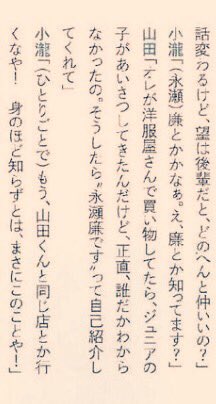 話変わるけど、望は後輩だと、どのへんと仲いいの？」
小瀧「（永瀬）廉とかかなぁ。え、廉とか知ってます？」
山田「オレが洋服屋さんで買い物してたら、ジュニアの
子があいさつしてきたんだけど、正直、誰だかわから
なかったの。そうしたら“永瀬廉です”って自己紹介し
てくれて」
小瀧「（ひとりごとで）もう、山田くんと同じ店とか行
くなや！　身のほど知らずとは、まさにこのことや！」